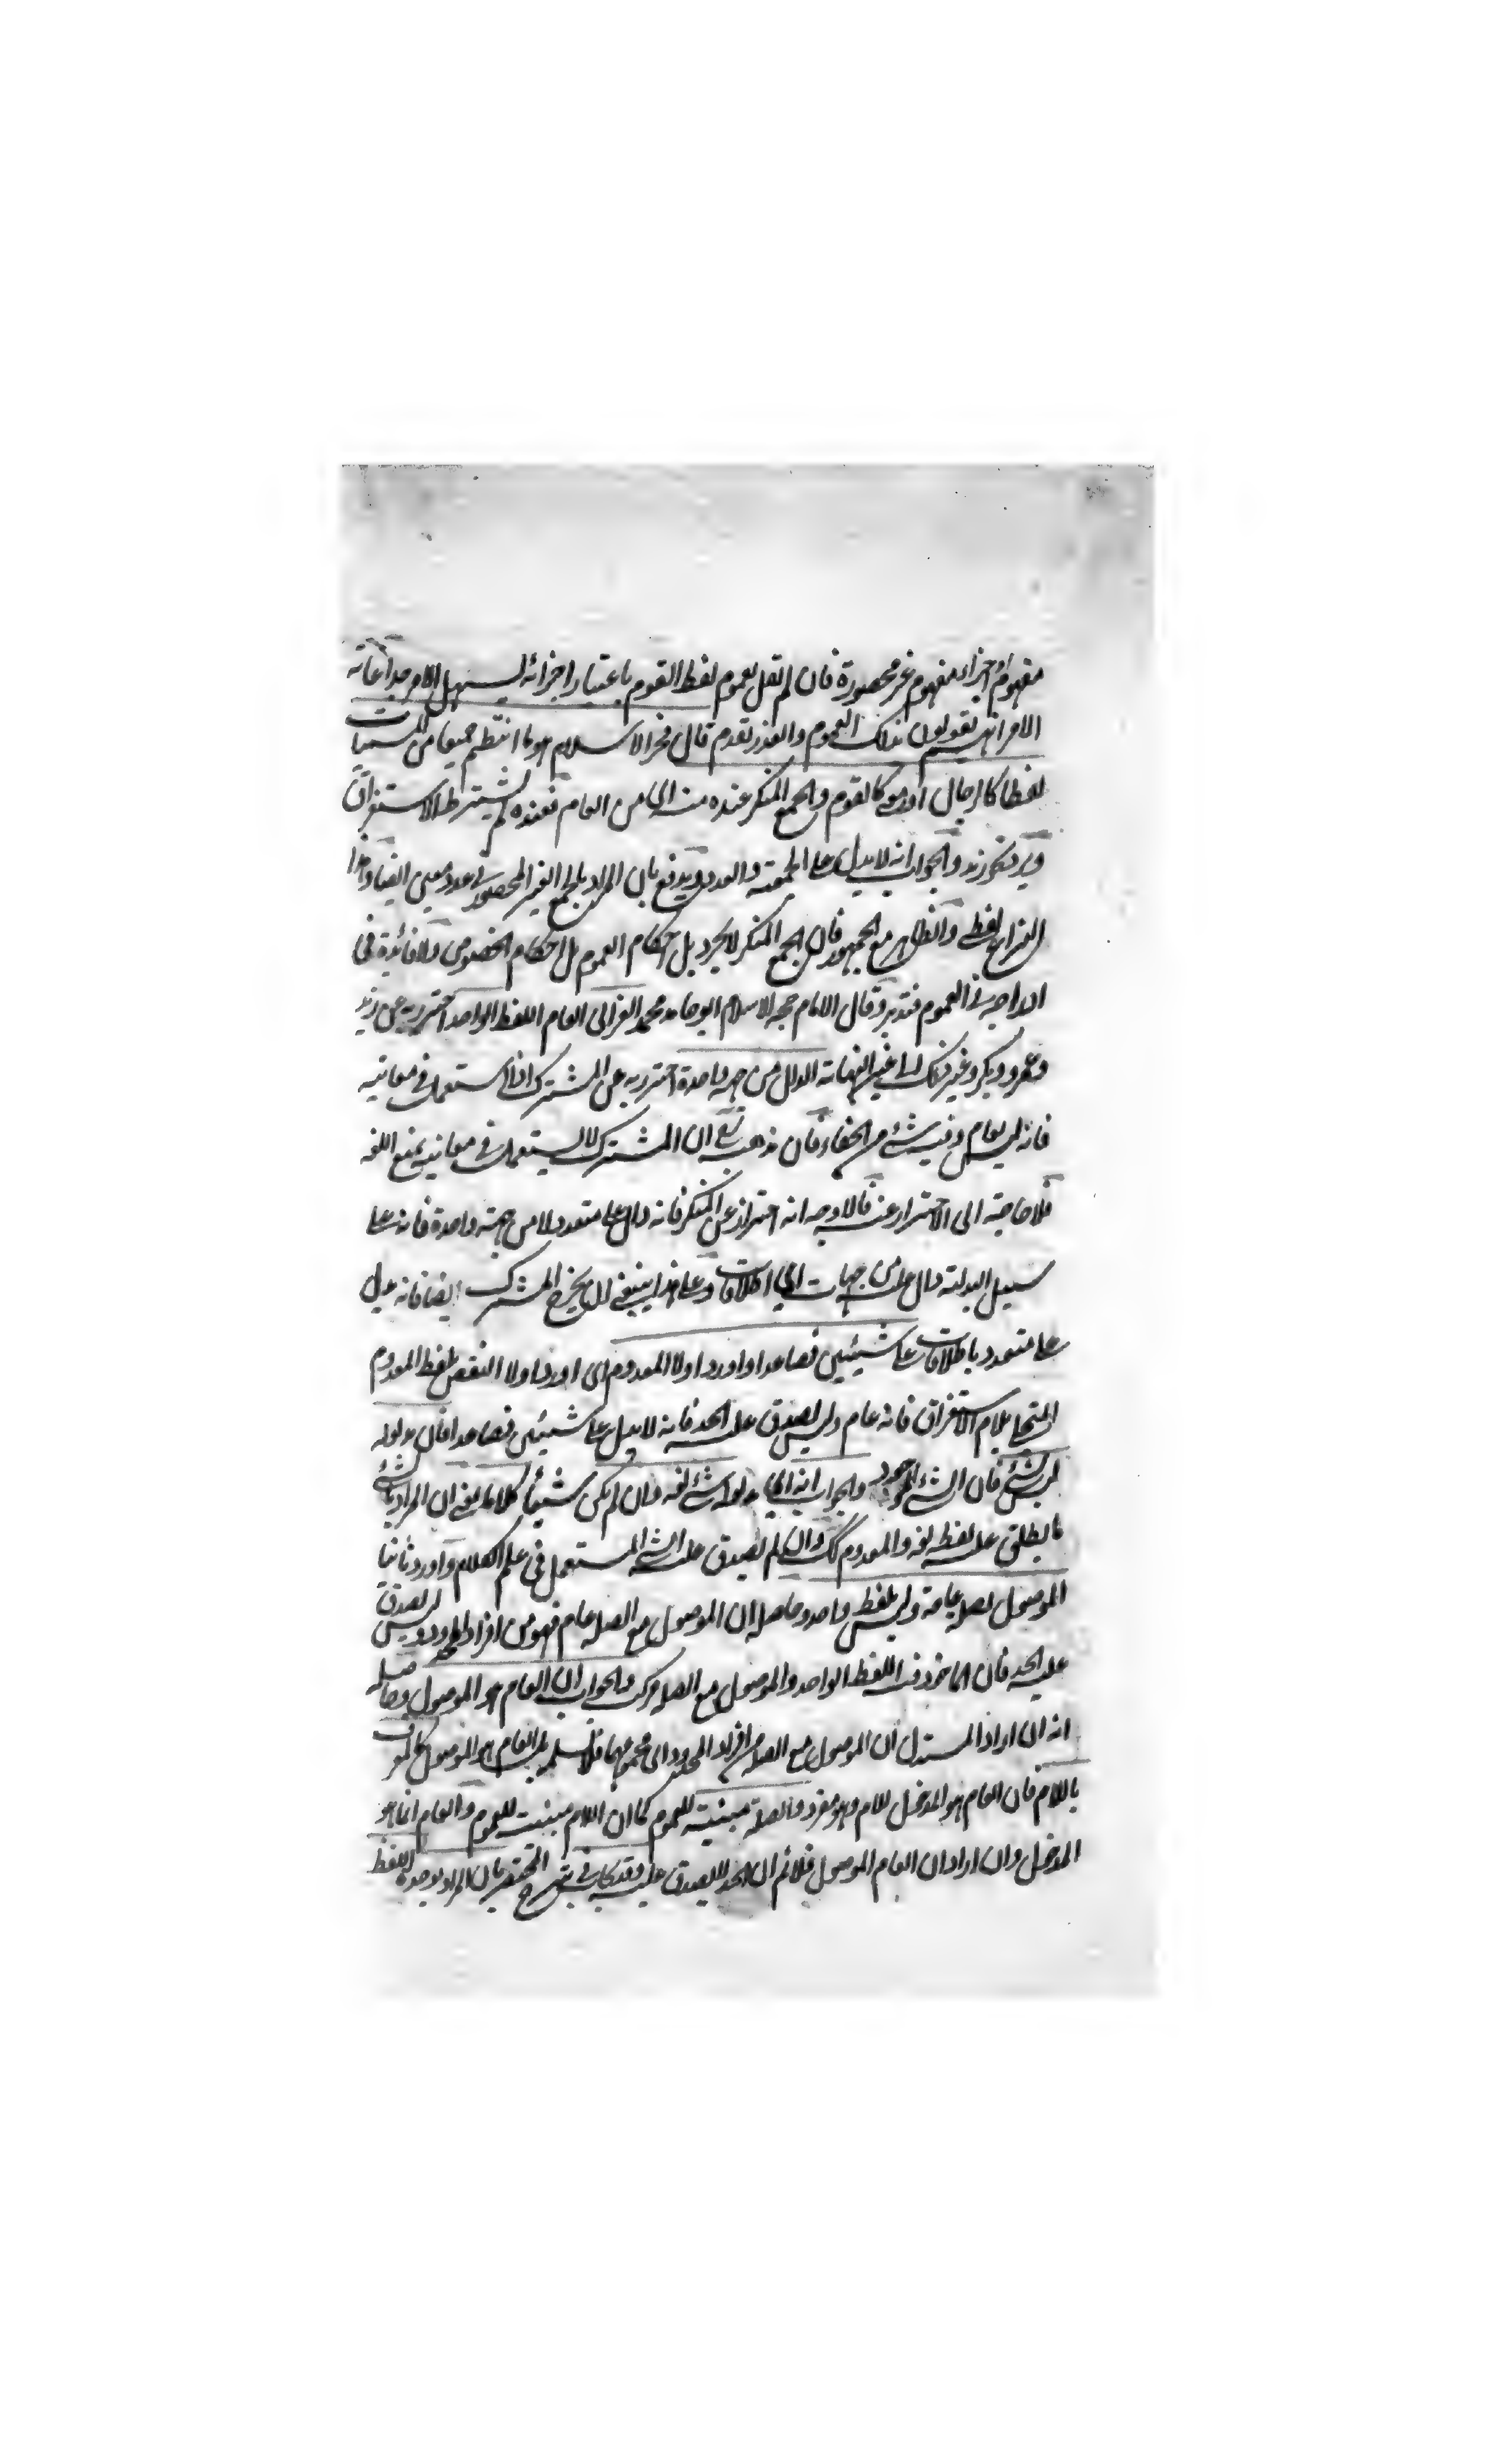 مفهوم اجزاء مفهوم غير محصورة فان لم تقل بعموم لفظ القوم باعتبار اجزائه ليسهل الامر جدا غاية
الامر انهم يقولون بذلك العموم والعذر تقدم قال فخر الاسلام هو ما انتظم جمعا من المسميات
لفظا كالرجال او معنى كالقوم والجمع المنكر عنده منه اى من العام فعنده لم يشترط الاستغراق
ويرد نحو زيد والجواب انه لا يدل على الجمعية والعدد ويدفع بان المراد بالجمع الغير المحصور في عدد معين ايضا وهذا
النزاع لفظى والظاهر مع الجمهور فان الجمع المنكر لا يجرد بل احكام العموم بل احكام الخصوص ولا فائدة فى
ادراجه فى العموم فتدبر وقال الامام حجة الاسلام ابو حامد محمد الغزالى العام اللفظ الواحد احترز به عن زيد
وعمرو وبكر وغير ذلك الى غير النهاية الدال من جهة واحدة احترز به عن المشترك اذا استعمل فى معانيه
فانه ليس بعام وفيه شئ من الخفاء فان مذهبه ان المشترك لا يستعمل فى معانيه بمنع اللغة
فلا حاجة الى الاحتراز عنه فالاوجه انه احتراز عن المنكر فانه دال على متعدد لا من جهة واحدة فانه على
سبيل البدلية دال عليه من جهات اى اطلاقات وعلى هذا ينبغى ان يخرج المشترك ايضا فانه يدل
على متعدد باطلاقات على شيئين فصاعدا واورد اولا المعدوم اى اورد اولا النقض بلفظ المعدوم
المتحلى بلام الاستغراق فانه عام وليس يصدق عليه الحد فانه لا يدل على شيئين فصاعدا فان مدلوله
ليس بشئ فان الشئ الموجود والجواب انه اى مدلوله شئ لغة وان لم يكن شيئا كلاما يعنى ان المراد بالشئ
ما يطلق عليه لفظه لغة والمعدوم كك وان لم يصدق عليه الشئ المستعمل فى علم الكلام واورد ثانيا
الموصول بصلة عامة وليس بلفظ واحد وحاصله ان الموصول مع الصلة عام فهو من افراد المحدود وليس يصدق
عليه الحد فان الماخوذ فيه اللفظ الواحد والموصول مع الصلة مركب والجواب ان العام هو الموصول وحاصله
انه ان اراد المستدل ان الموصول مع الصلة من افراد المحدود اى مجموعهما فلا نسلمه بل العام هو الموصول كالمعرف
باللام فان العام هو المدخول للام وهو مفرد والصلة مبينة للعموم كما ان اللام مبينة للعموم والعام انما هو
المدخول وان اراد ان العام الموصول فلا نم ان الحد لا يصدق عليه وقد كان فى شرح المختصر بان المراد بوحدة اللفظ